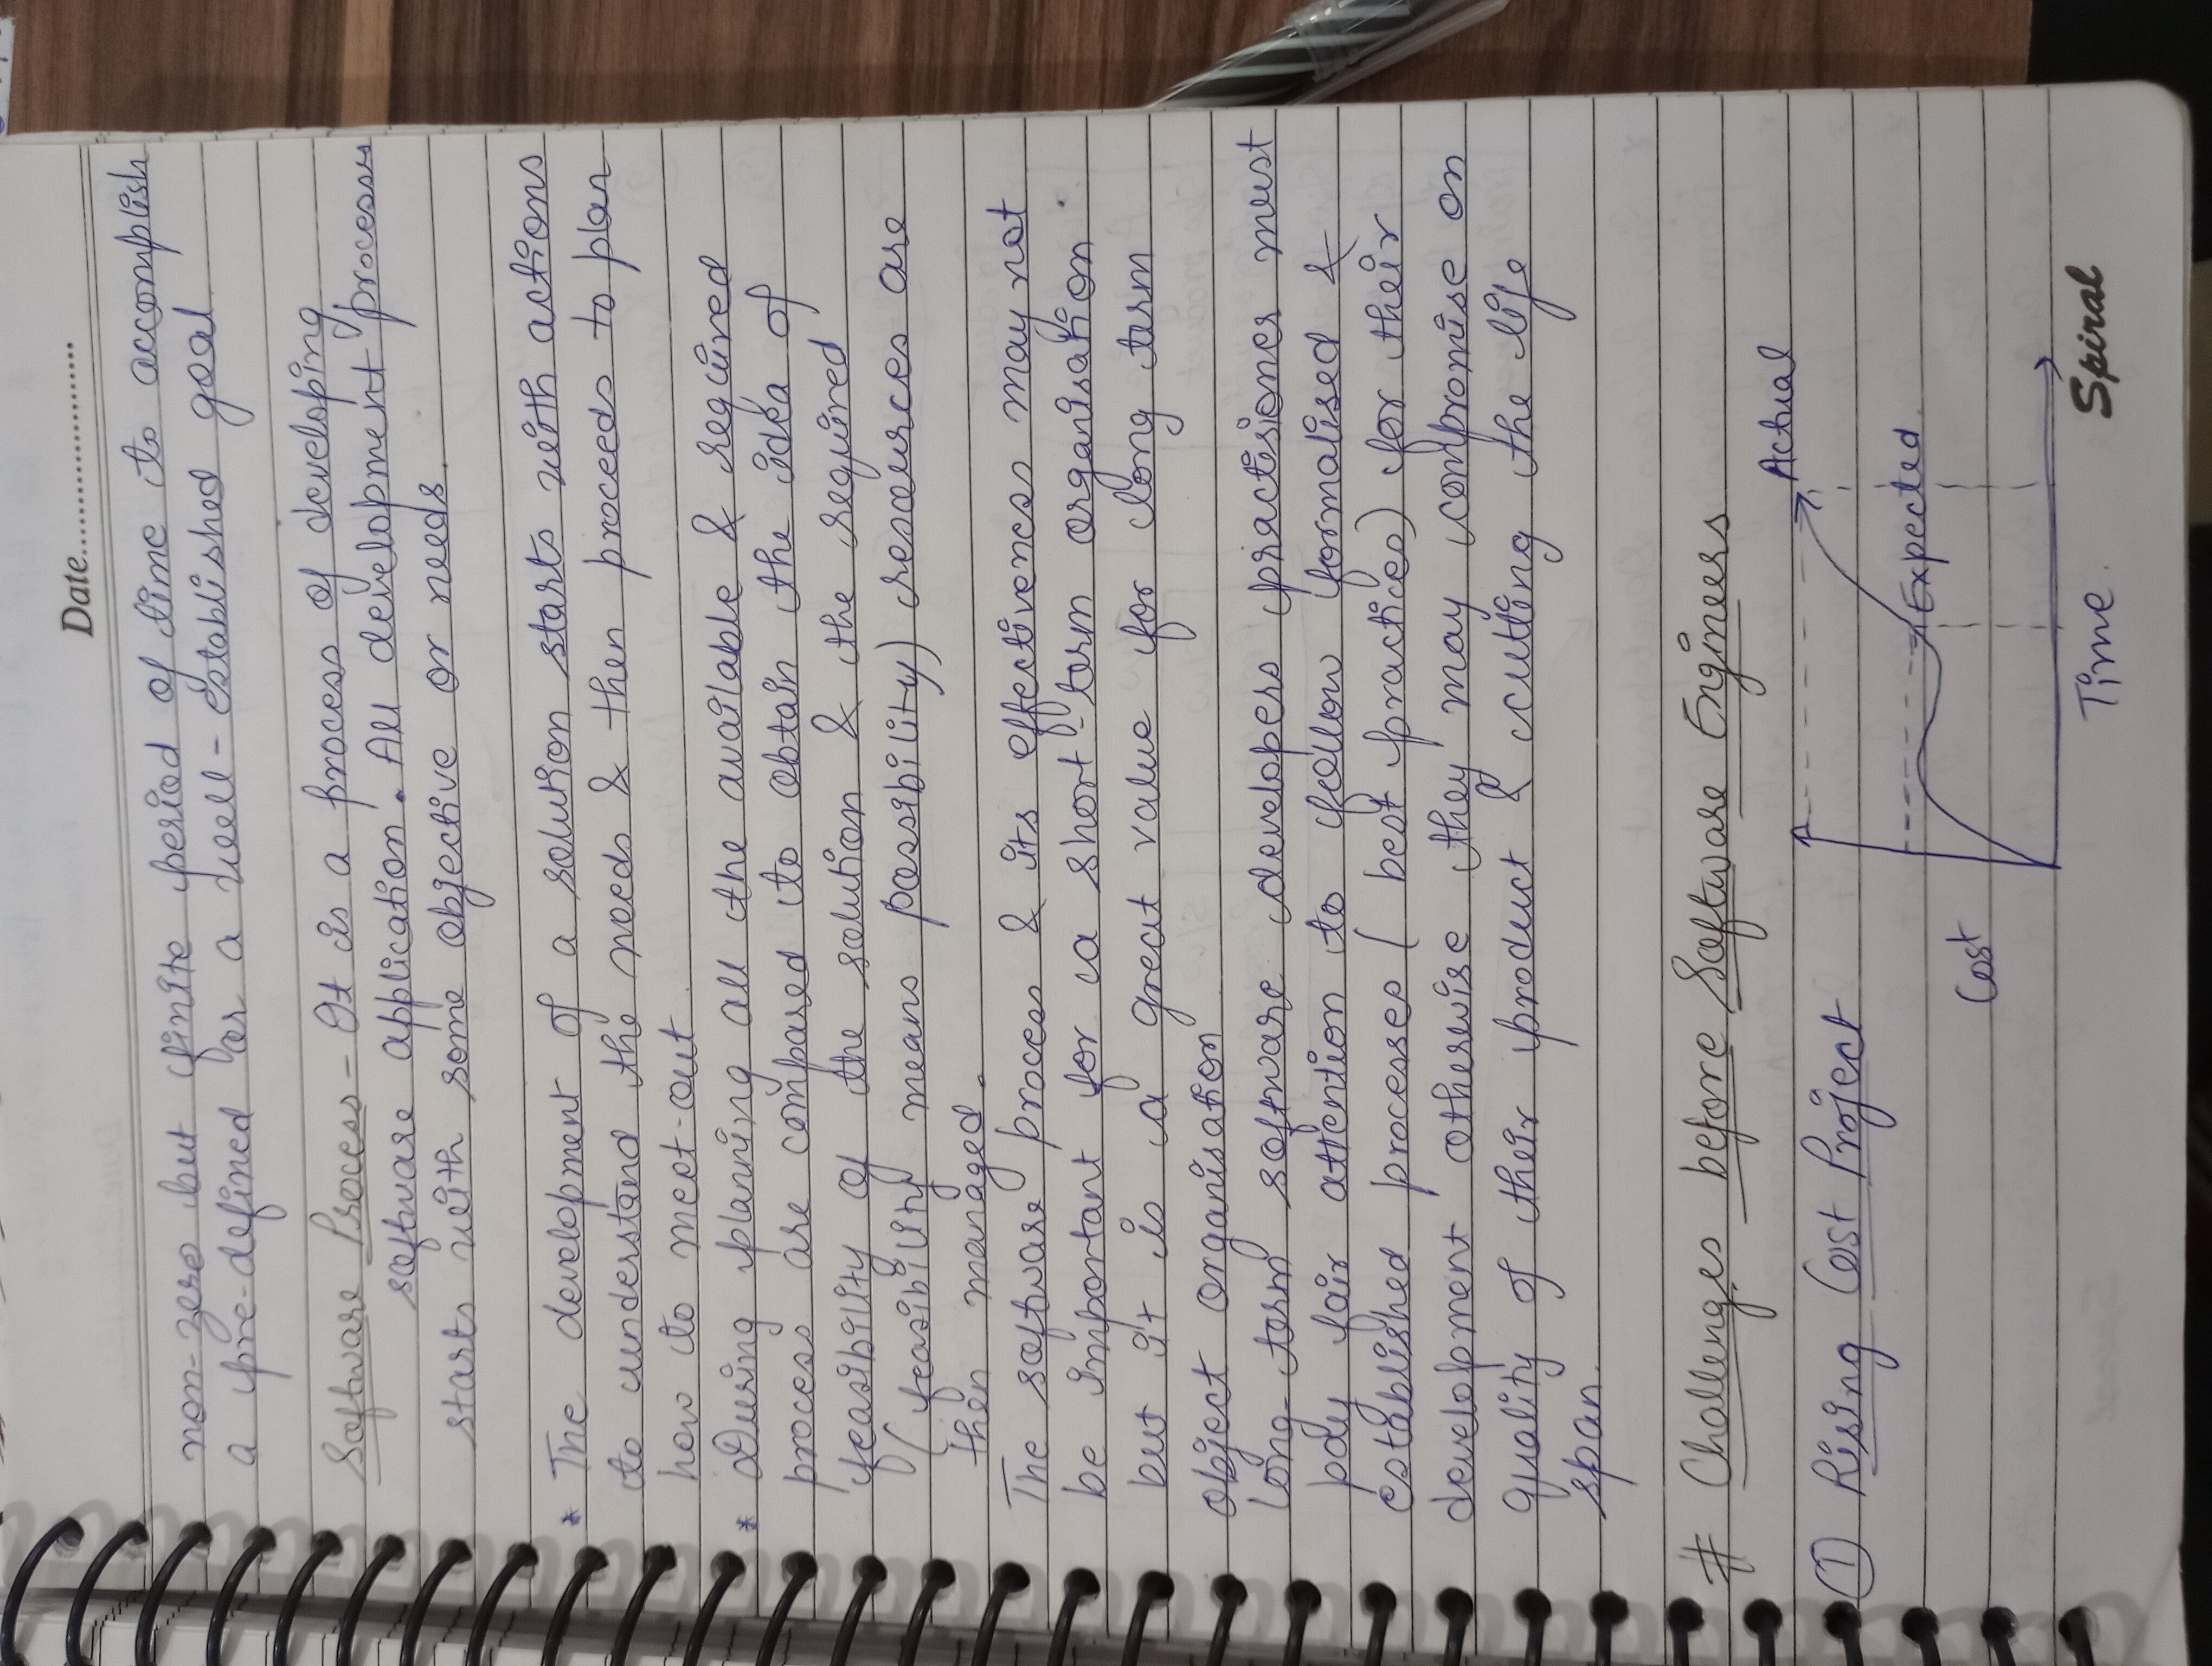 Date........................
non-zero but finite period of time to accomplish
a pre-defined or a well-established goal
Software Process - It is a process of developing
software application. All development process
starts with some objective or needs.
* The development of a solution starts with actions
to understand the needs & then proceeds to plan
how to meet-out.
* During planning all the available & required
process are compared to obtain the idea of
feasibility of the solution & the required
(feasibility means possibility) resources are
then manged.
The software process & its effectiveness may not
be important for a short-term organisation
but it is a great value for long term
object organisation.
Long-term software developers practisioner must
pay fair attention to follow formalised &
established processes (best practices) for their
development otherwise they may compromise on
quality of their product & cutting the life
span.
# Challenges before Software Engineers
① Rising Cost Project
Actual
Cost
Expected
Time
Spiral